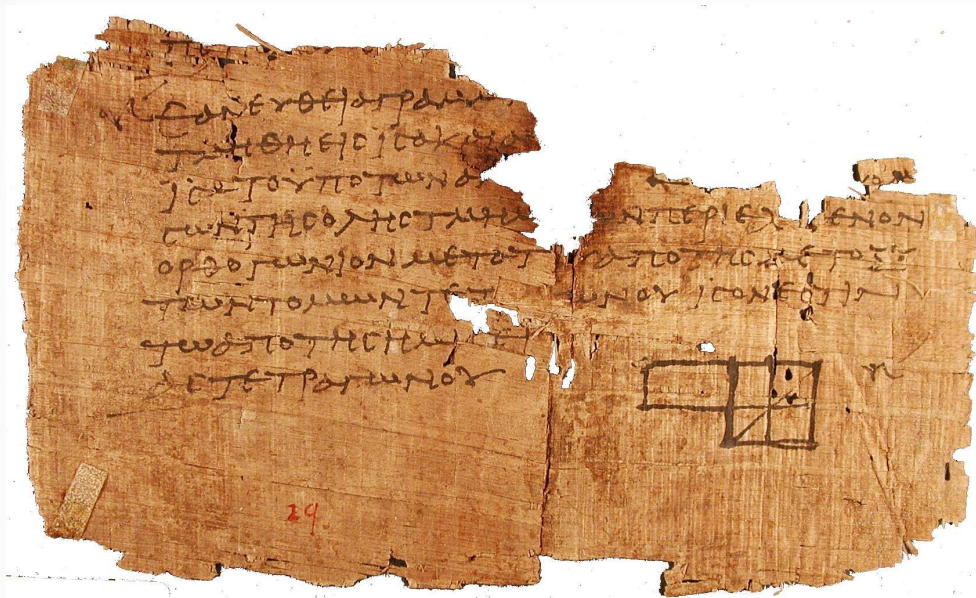 ΕΑΝΕΥΘΕΙΑΓΡΑΜΜ
ΤΜΗΘΗΕΙCΙCΑΚΑΙΑ
ΙCΑΤΟΥΠΟΤΩΝΑ
CΩΝΤΗCΟΛΗCΤΜΗΜ ΩΝΠΕΡΙΕΧ ΕΝΟΝ
ΟΡΘΟΓΩΝΙΟΝΜΕΤΑΤ ΥΑΠΟΤΗCΜΕΤΟΞΥ
ΤΩΝΤΟΜΩΝΤΕΤ ΩΝΟΥΙCΟΝΕCΤΙΝ
ΤΩΑΠΟΤΗCΗΜΙ ΕΙ
ΑCΤΕΤΡΑΓΩΝΟΥ
29.